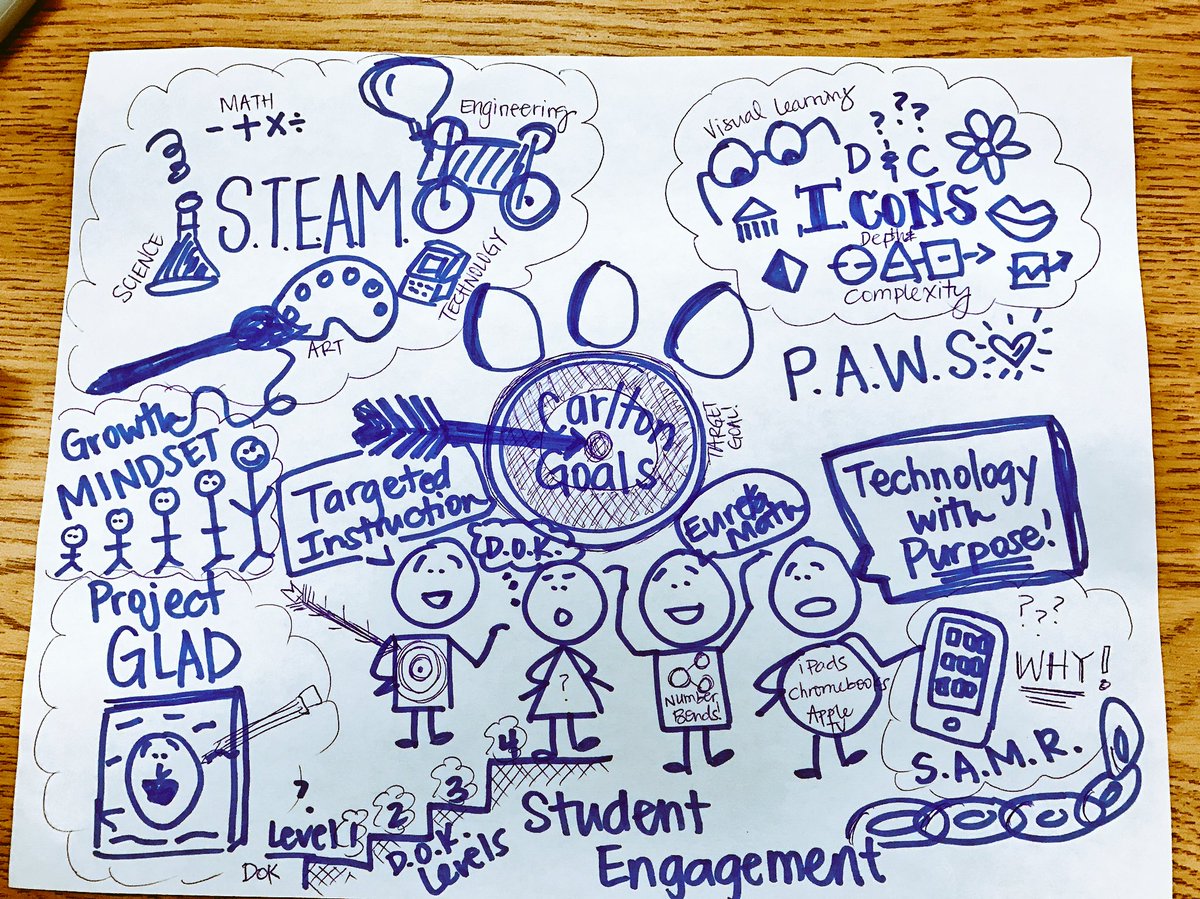 MATH
- + x ÷
Engineering
S.T.E.A.M.
SCIENCE
TECHNOLOGY
ART
Visual Learning
? ? ?
D & C
ICONS
Depth &
Complexity
P.A.W.S
Growth
MINDSET
Carlton
Goals
TARGET
GOAL!
Targeted
Instruction
D.O.K.
Eureka
Math
Technology
with
Purpose!
Project
GLAD
?
Number
Bonds!
iPads
Chromebooks
Apple
TV
???
WHY!
S.A.M.R.
?
Level 1
2
3
4
DOK
D.O.K
Levels
Student
Engagement